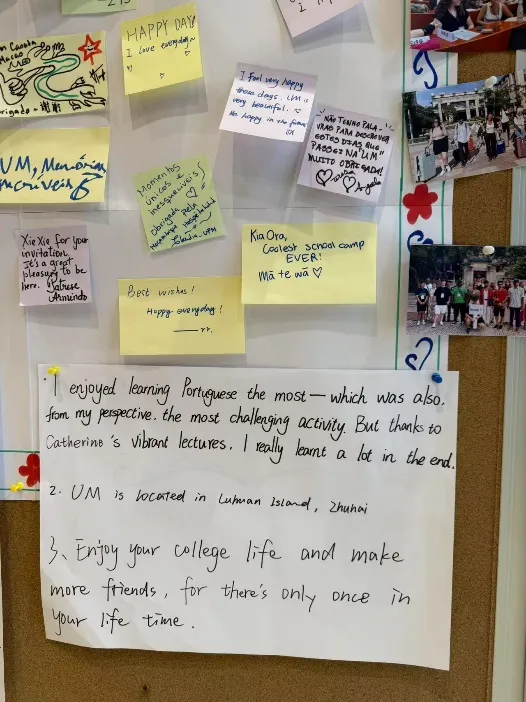 HAPPY DAY!
I love everyday~
I feel very happy
these days. UM is
very beautiful.
Be happy in the future
NÃO TENHO PALA-
VRAS PARA DESCREVER
ESTES DIAS QUE
PASSEI NA UM
MUITO OBRIGADA!
UM, Memórias
Momentos
únicos e
inesquecíveis!
Obrigada pela
Kia Ora,
Coolest school camp
EVER!
Mā te wā ♡
Xie Xie for your
invitation.
It's a great
pleasure to be
here.
Best wishes!
Happy everyday!
1 enjoyed learning Portuguese the most — which was also,
from my perspective, the most challenging activity. But thanks to
Catherine's vibrant lectures, I really learnt a lot in the end.
2. UM is located in Luhuan Island, Zhuhai
3、Enjoy your college life and make
more friends, for there's only once in
your life time.